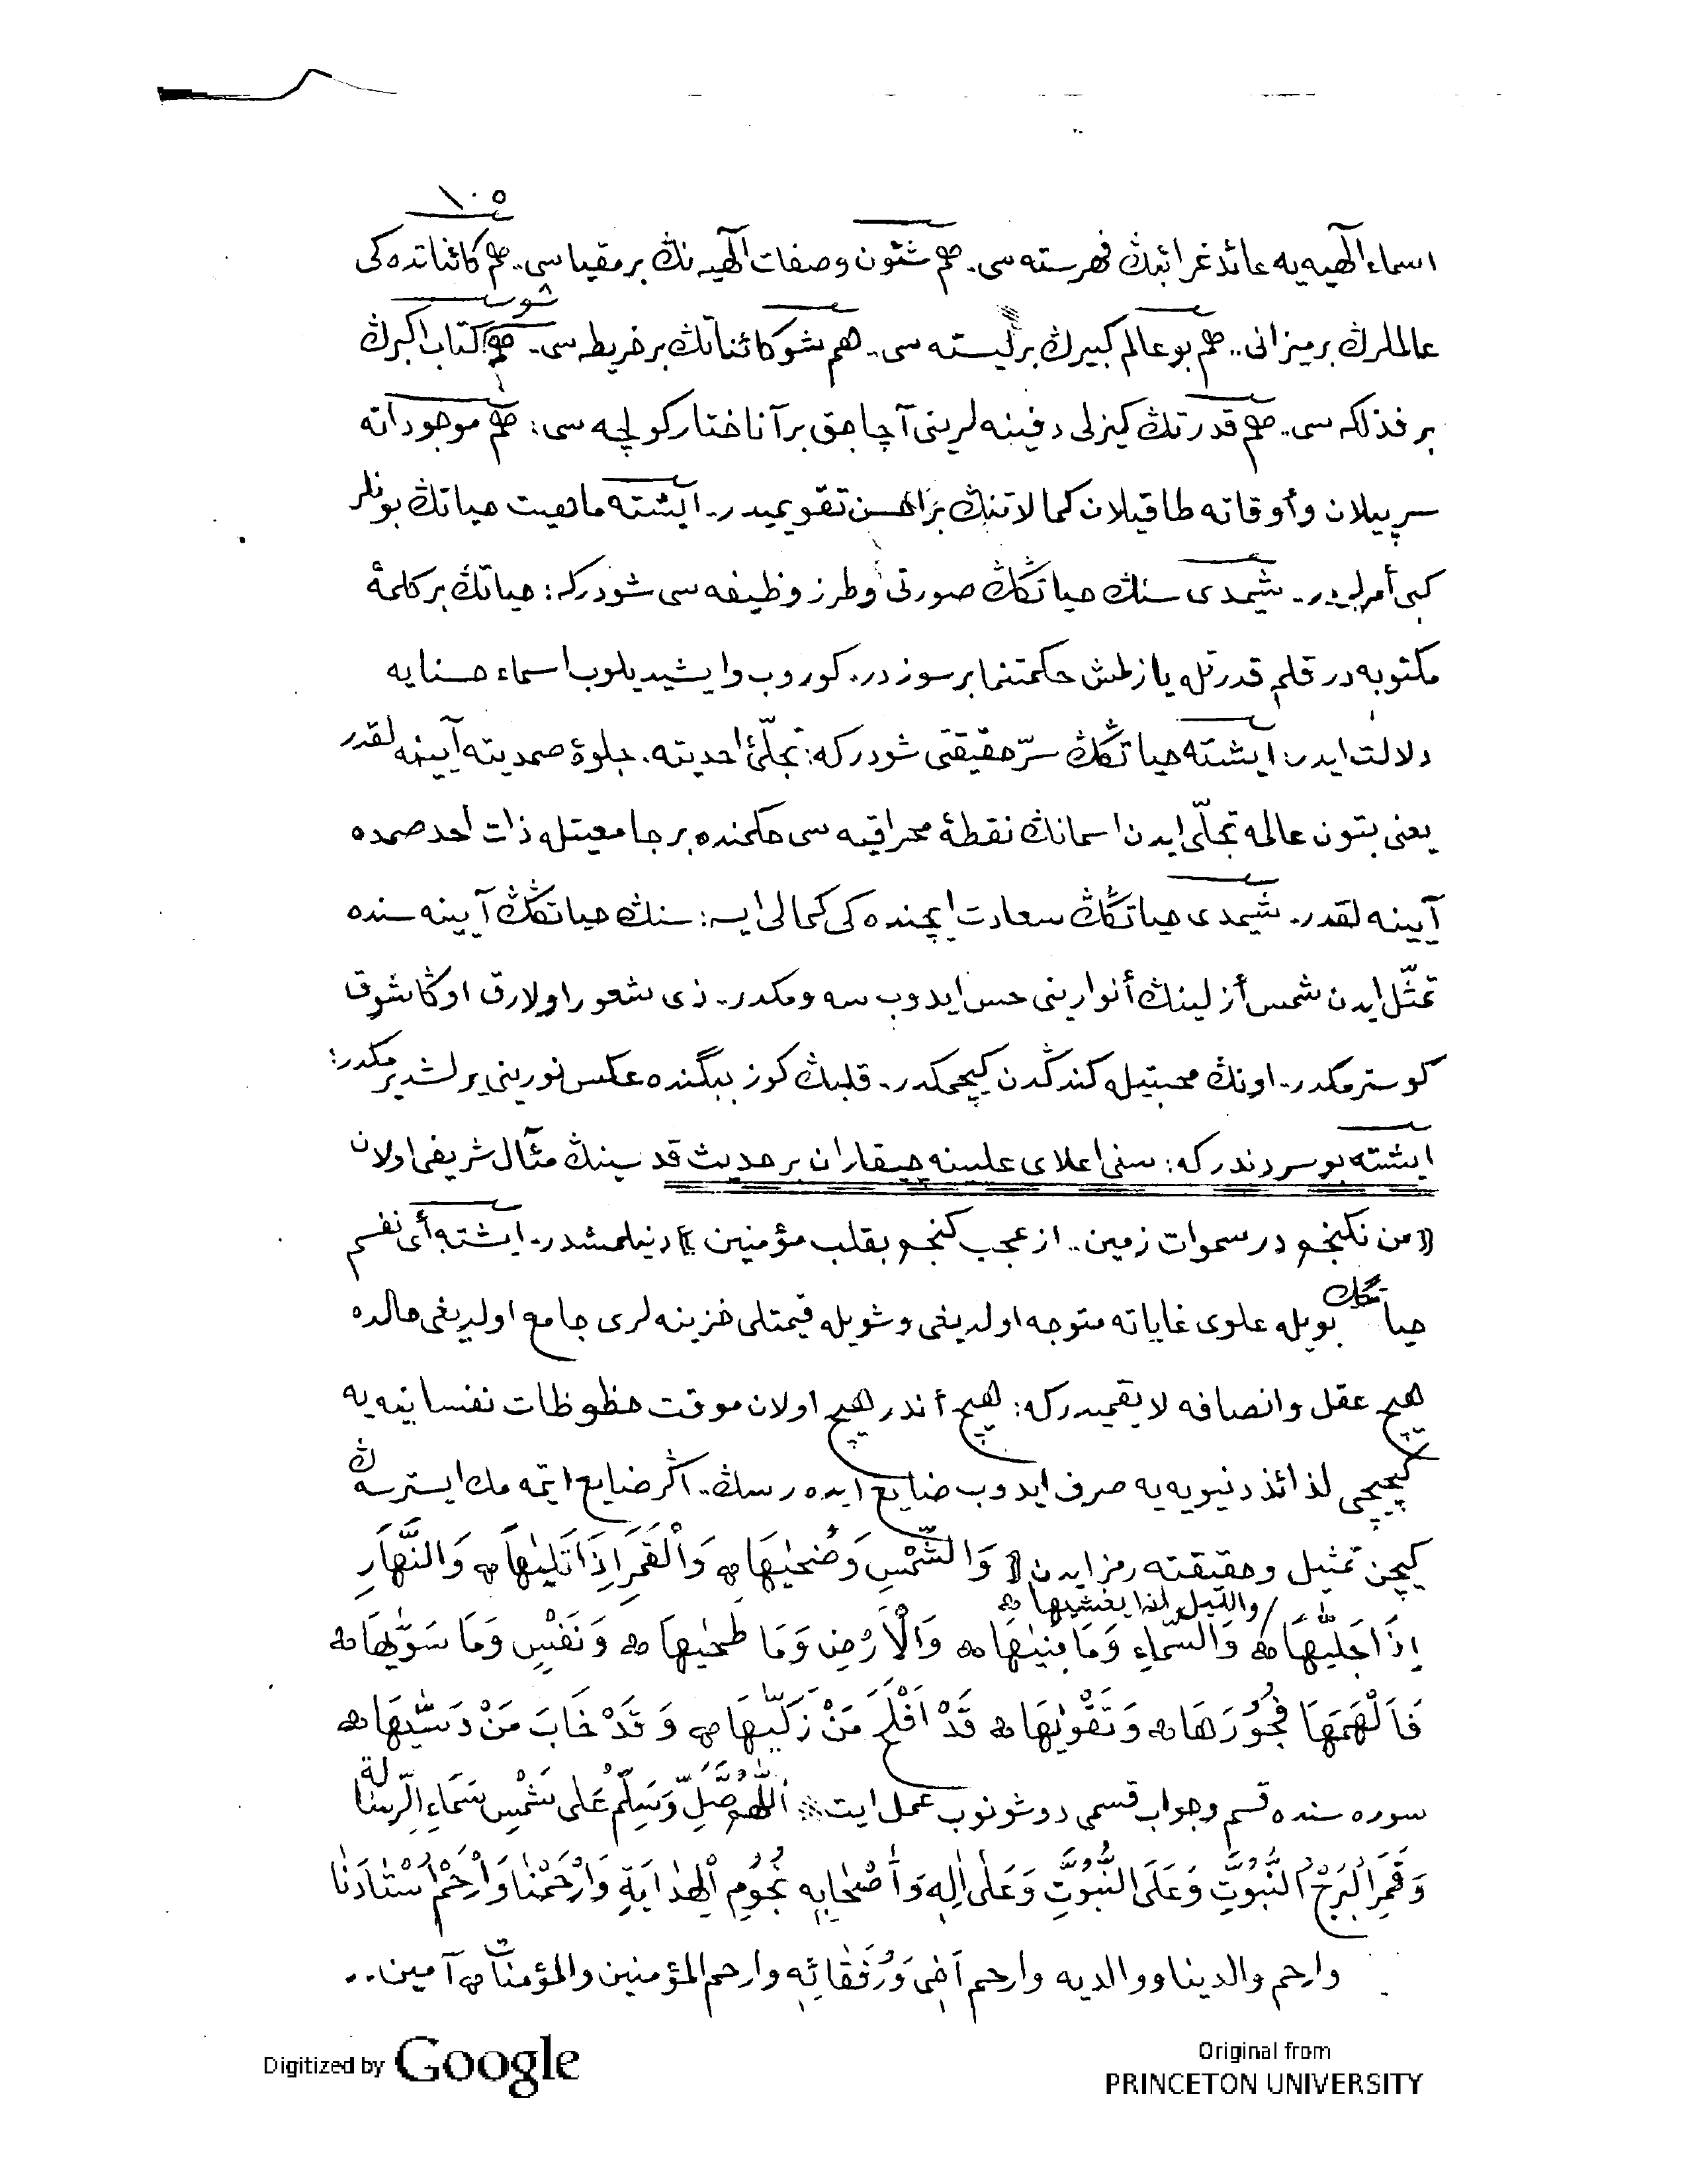 ١٠٥
اسماء الٓهیه‌یه عائد غرائبڭ فهرسته‌سی.. هم شئون وصفات الٓهیه‌نڭ بر مقیاسی.. هم کائناتده‌کی
عالملرڭ بر میزانی.. هم بو عالم کبیرڭ بر لیسته‌سی.. هم شو کائناتڭ بر خریطه‌سی.. هم شو کتاب اکبرڭ
بر فذلکه‌سی.. هم قدرتڭ کیزلی دفینه‌لرینی آچاجق بر آناختار کولچه‌سی: هم موجوداته
سرپیلان و أوقاته طاقیلان کمالاتنڭ بر احسن تقویمیدر.. ایشته ماهیت حیاتڭ بونلر
کبی أمرلردر.. شیمدی سنڭ حیاتڭڭ صورتی و طرز وظیفه‌سی شودرکه: حیاتڭ بر کلمهٔ
مکتوبه‌در قلم قدرتله یازلمش حکمتنما بر سوزدر. کوروب و ایشیدیلوب اسماء حسنایه
دلالت ایدر: ایشته حیاتڭڭ سرّ حقیقتی شودرکه: تجلّیٔ احدیته. جلوهٔ صمدیته آیینه‌لقدر
یعنی بتون عالمه تجلّی ایدن اسمانڭ نقطهٔ محراقیه‌سی حکمنده بر جامعیتله ذات احد صمده
آیینه‌لقدر. شیمدی حیاتڭڭ سعادت ایچنده‌کی کمالی ایسه: سنڭ حیاتڭڭ آیینه‌سنده
تمثّل ایدن شمس أزلینڭ أنوارینی حس ایدوب سه‌ومکدر.. ذی شعور اولارق اوڭا شوق
کوسترمکدر.. اونڭ محبتیله کندڭدن کیچمکدر.. قلبڭ کوز ببگنده عکس نورینی یرلشدیرمکدر:
ایشته بو سردندرکه: سنی اعلای علیینه چیقاران بر حدیث قدسینڭ مئآل شریفی اولان
(من نکنجم در سموات زمین.. از عجب کنجم بقلب مؤمنین) دنیلمشدر.. ایشته أی نفسم
حیاتڭڭ بویله علوی غایاته متوجه اولدیغی و شویله قیمتلی خزینه‌لری جامع اولدیغی حالده
هیچ عقل و انصافه لایقمیدرکه: هیچ أندر هیچ اولان موقت حظوظات نفسانیه‌یه
کیچیجی لذائذ دنیویه‌یه صرف ایدوب ضایع ایده‌رسڭ.. اڭر ضایع ایتمه‌مك ایسترسه‌ڭ
کیچن تمثیل و حقیقته رمز ایدن (وَالشَّمْسِ وَضُحٰیهَا ۞ وَالْقَمَرِ اِذَا تَلٰیهَا ۞ وَالنَّهَارِ
اِذَا جَلّٰیهَا ۞ والّلیل اذا یغشیها ۞ وَالسَّمَاءِ وَمَا بَنٰیهَا ۞ وَالْاَرْضِ وَمَا طَحٰیهَا ۞ وَنَفْسٍ وَمَا سَوّٰیهَا ۞
فَاَلْهَمَهَا فُجُورَهَا ۞ وَتَقْوٰیهَا ۞ قَدْ اَفْلَحَ مَنْ زَکّٰیهَا ۞ وَقَدْ خَابَ مَنْ دَسّٰیهَا ۞
سوره‌سنده قسم و جواب قسمی دوشونوب عمل ایت ۞ اَللّٰهُمَّ صَلِّ وَسَلِّمْ عَلٰی شَمْسِ سَمَاءِ الرِّسَالَةِ
وَقَمَرِ الْبُرْجِ النُّبُوَّتِ وَعَلَی النُّبُوَّتِ وَعَلٰی اٰلِهِ وَأَصْحَابِهِ نُجُومِ الْهِدَایَةِ وَارْحَمْنَا وَارْحَمْ اُسْتَادَنَا
وارحم والدینا ووالدیه وارحم اَخِی وَرُفَقَائِهِ وارحم المؤمنین والمؤمنات ۞ آمین..
Digitized by Google
Original from
PRINCETON UNIVERSITY